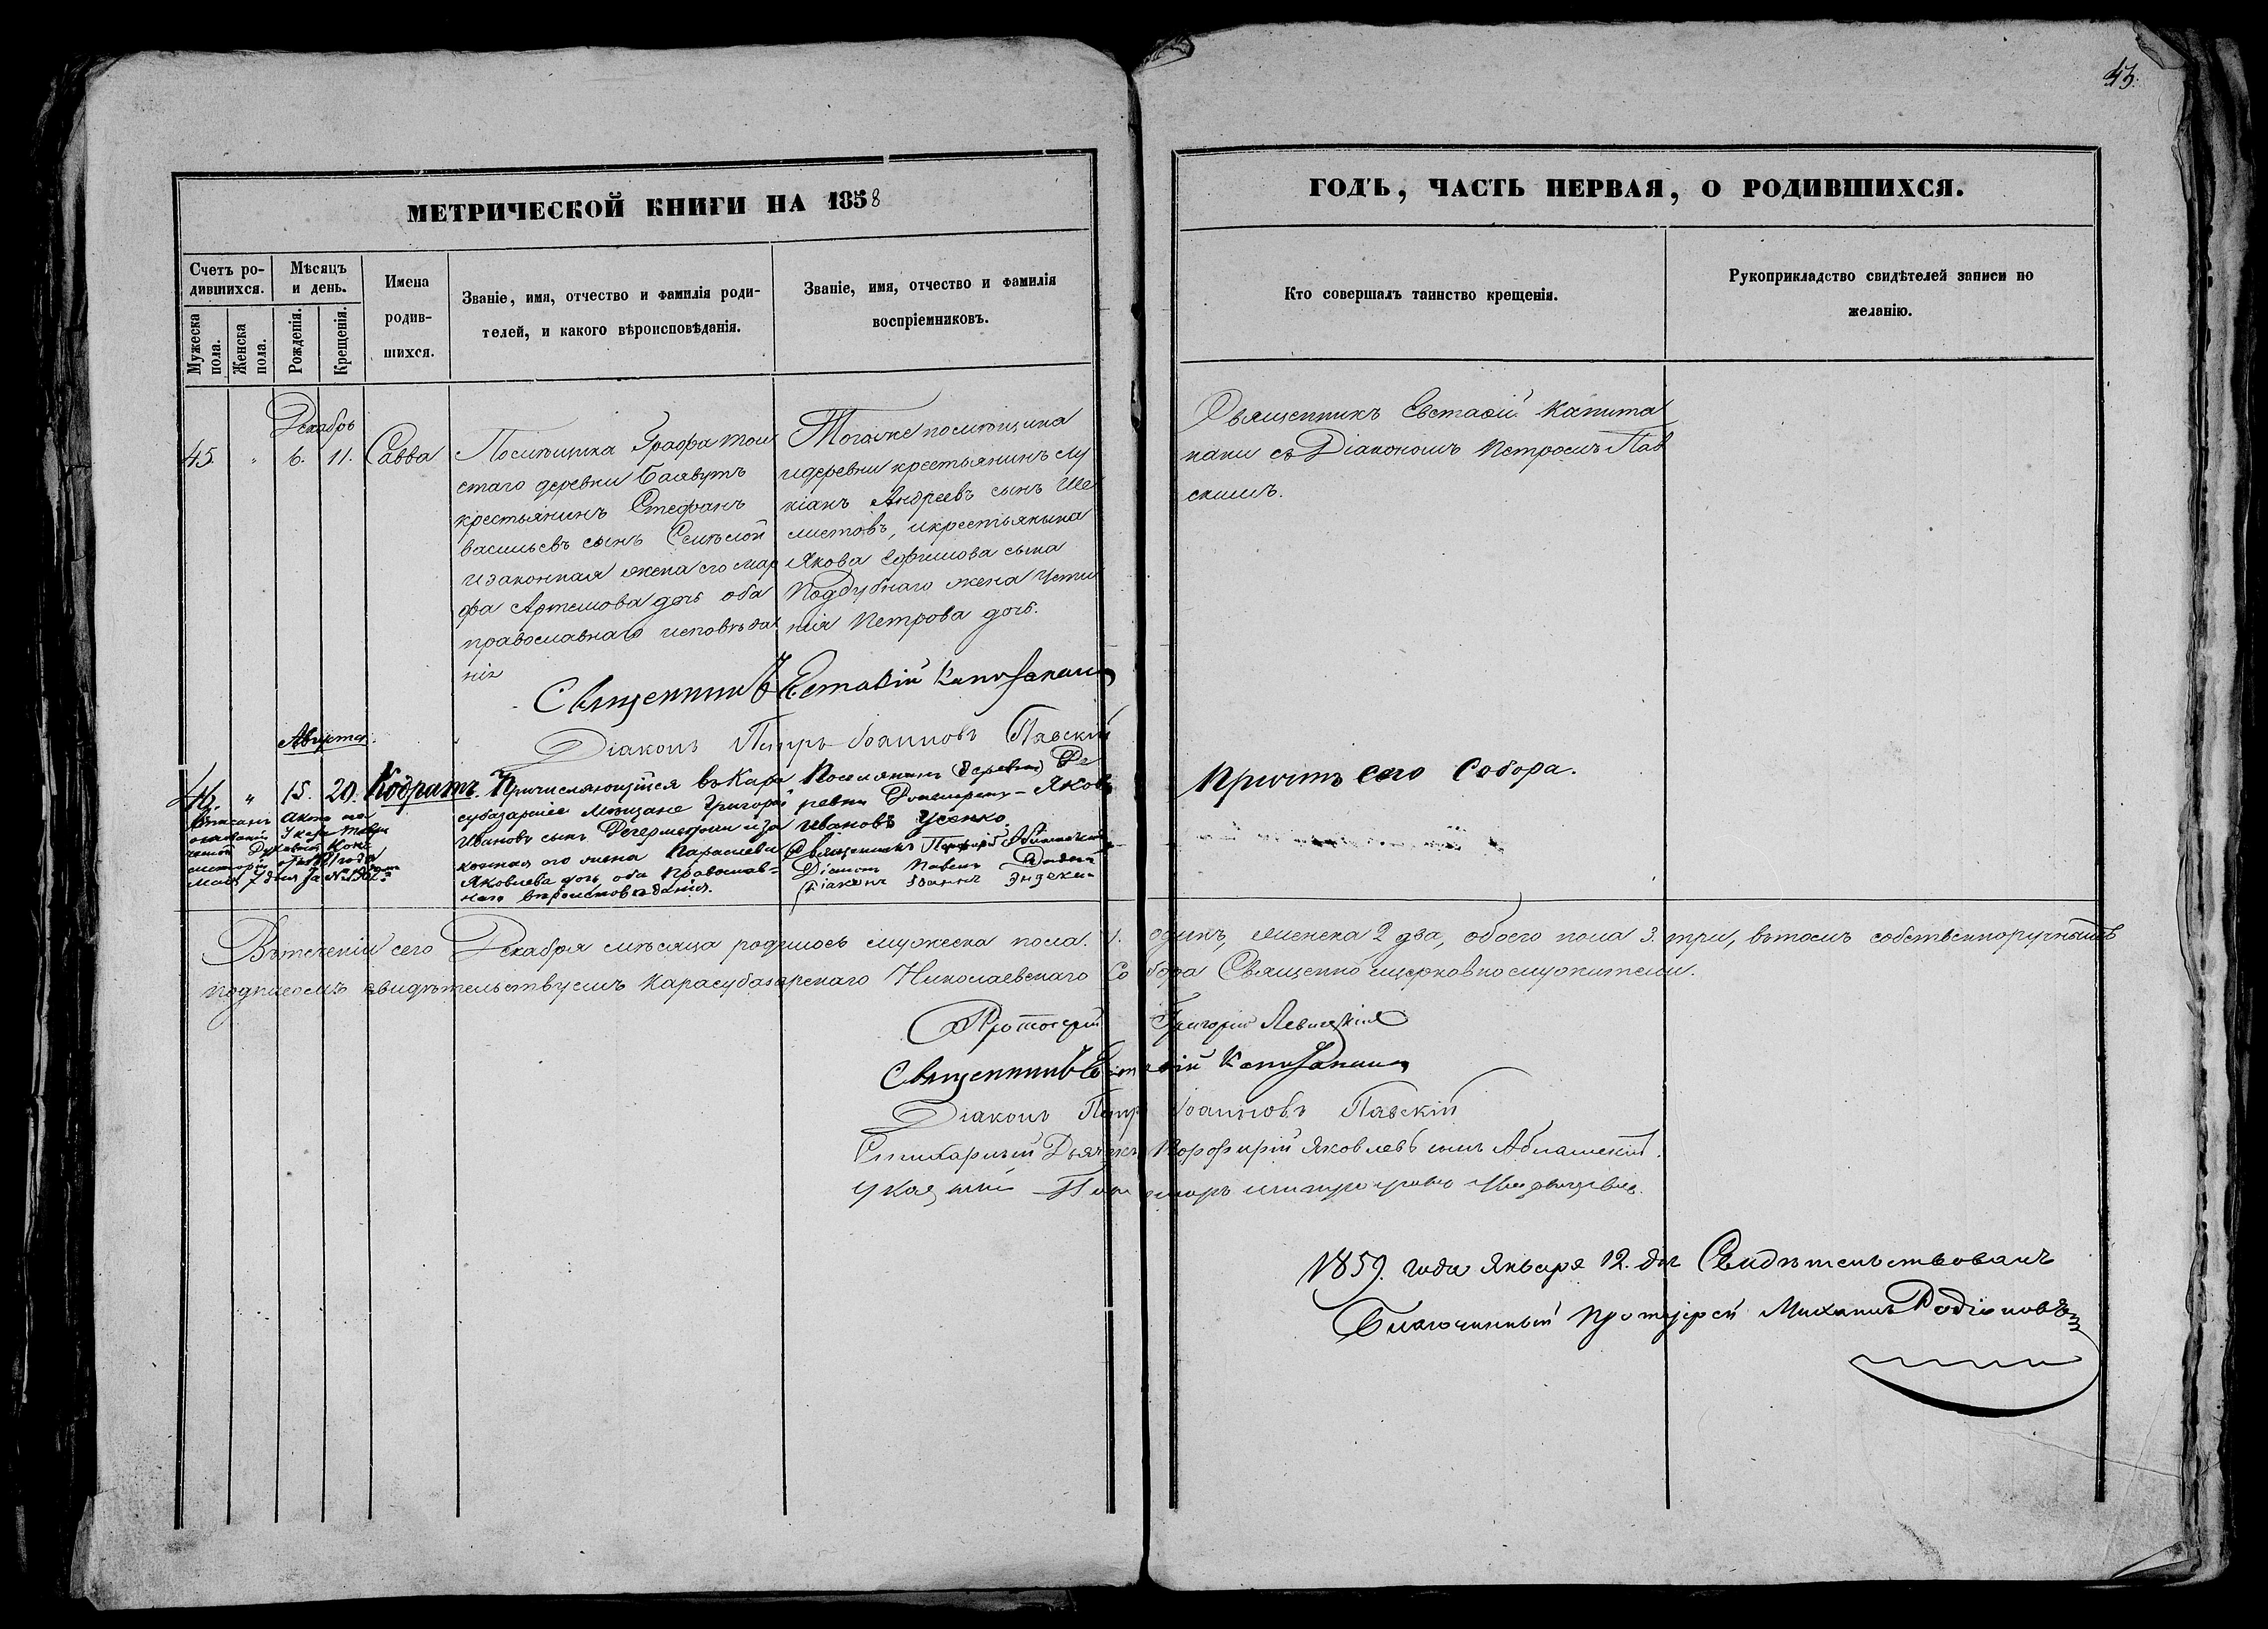 43.
МЕТРИЧЕСКОЙ КНИГИ НА 1858
ГОДЪ, ЧАСТЬ ПЕРВАЯ, О РОДИВШИХСЯ.
Счетъ ро-
дившихся.
Мужеска
пола.
Женска
пола.
Мѣсяцъ
и день.
Рожденія.
Крещенія.
Имена
родив-
шихся.
Званіе, имя, отчество и фамилія роди-
телей, и какого вѣроисповѣданія.
Званіе, имя, отчество и фамилія
воспріемниковъ.
Кто совершалъ таинство крещенія.
Рукоприкладство свидѣтелей записи по
желанію.
Декабрь
45. " 6. 11. Савва
Помѣщика Графа тол
стаго деревни
крестьянинъ Стефанъ
васильевъ сынъ
изаконная жена его мар
фа Артемова дочь оба
православнаго исповѣда
нія
Тогоже помѣщика
идеревни крестьянинъ лу
кіанъ Андреевъ сынъ Ше
листовъ, икрестьянина
Якова Ефимова сына
Поддубнаго жена Усти
нія Петрова дочь.
Священникъ Евстафій Капита
наки съ Діакономъ Петромъ Пав
скимъ.
Священникъ Евстафій Капитанаки
Діаконъ Петръ Іоанновъ Павскій
Августа.
46. " 15. 20. Кодратъ.
Вписанъ актъ на
основаніи Указа Таври
ческой Духовной Кон
систоріи отъ года
Мая 7 дня за №
Причисляющійся въ Кара
субазарскіе Мѣщане Григорій
Ивановъ сынъ и за
конная его жена Параскева
Яковлева дочь оба Православ-
наго вѣроисповѣданія.
Поселянинъ деревни
Яковъ
Ивановъ Усенко.
Священникъ Порфирій
Діаконъ Павелъ
Діаконъ Іоаннъ
Причтъ сего Собора.
Втеченіи сего Декабря мѣсяца родилось мужеска пола. 1. одинъ, женска 2 два, обоего пола 3. три, вътомъ собственноручнымъ
подписомъ свидѣтельствуемъ Карасубазарскаго Николаевскаго Собора Священно ицерковнослужители.
Протоіерей Григорій Левицкій
Священникъ Евстафій Капитанаки
Діаконъ Петръ Іоанновъ Павскій
Дьячекъ Порфирій Яковлевъ сынъ
Указный Пономарь
1859. года Января 12. дня Свидѣтельствовалъ
Благочинный Протоіерей Михаилъ Родіоновъ